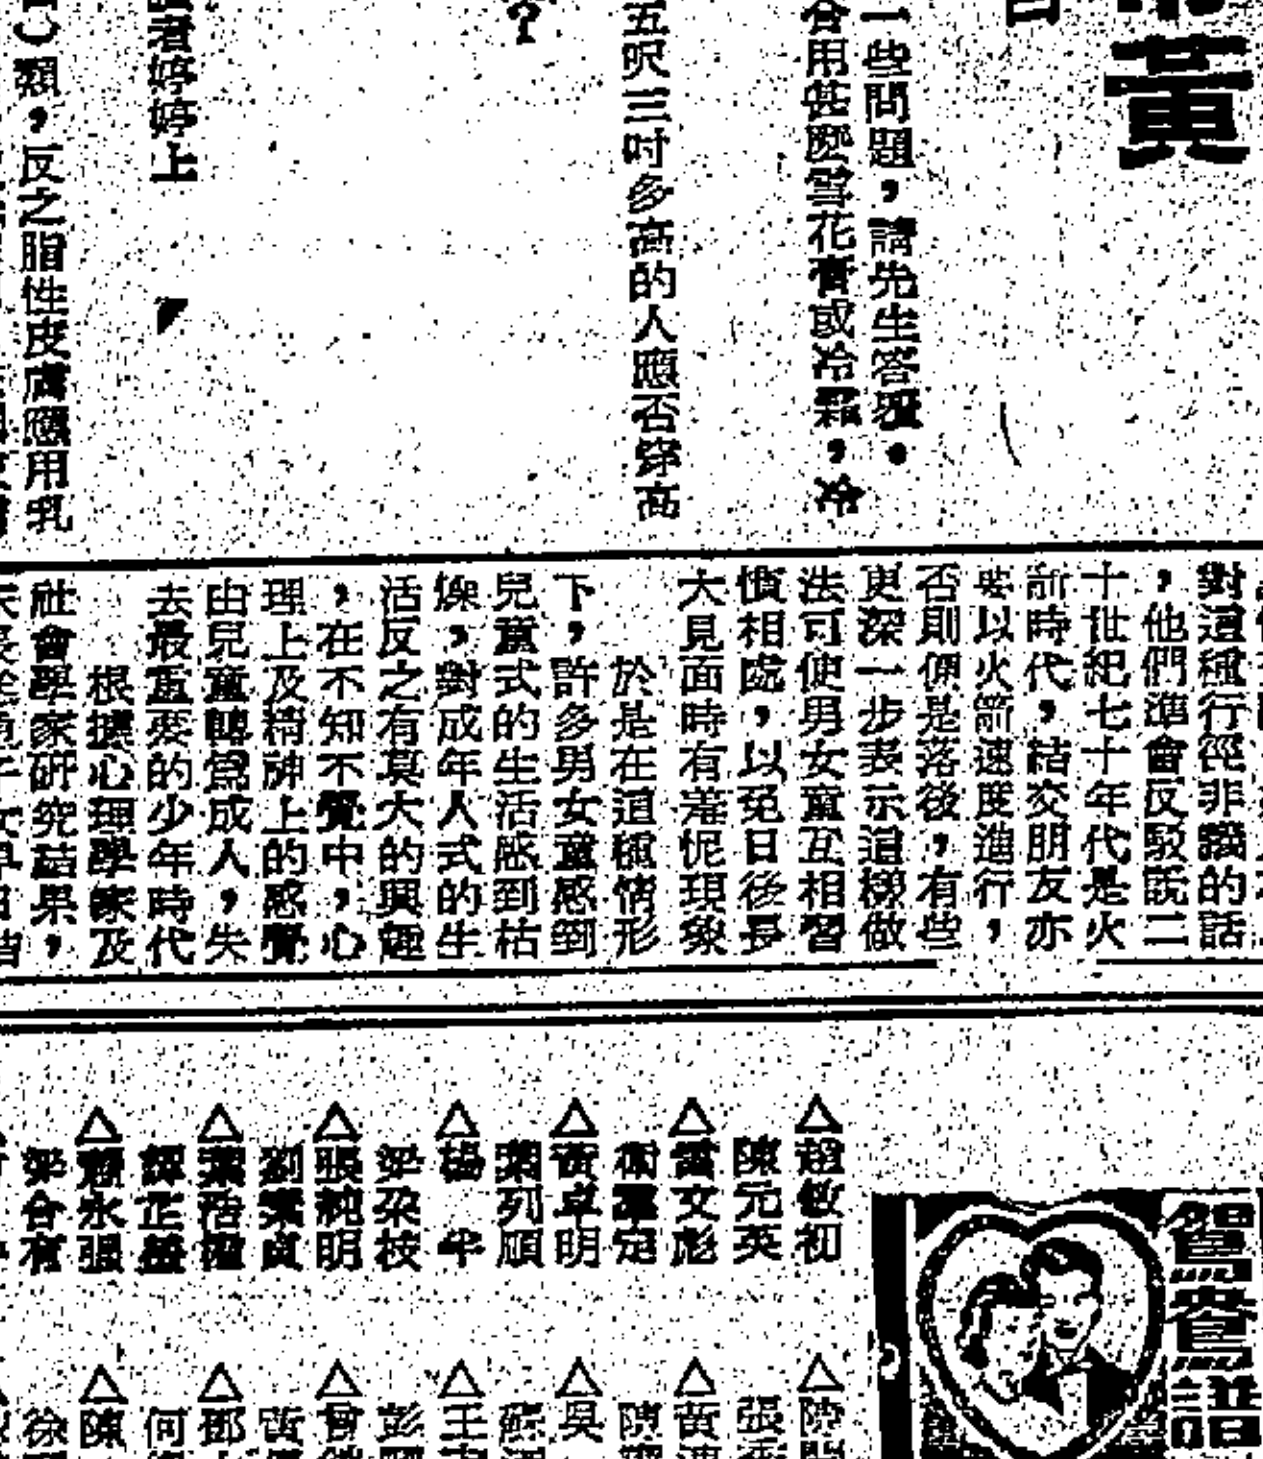 黃
一些問題，請先生答覆。
合用甚麼雪花膏或冷霜，冷
五呎三吋多高的人應否穿高
？
者婷婷上
類，反之脂性皮膚應用乳
對這種行徑非議的話
，他們準會反駁說二
十世紀七十年代是火
箭時代，結交朋友亦
要以火箭速度進行，
否則便是落後，有些
更深一步表示這樣做
法可使男女童互相習
慣相處，以免日後長
大見面時有羞怩現象
於是在這種情形
下，許多男女童感到
兒童式的生活感到枯
燥，對成年人式的生
活反之有莫大的興趣
，在不知不覺中，心
理上及精神上的感覺
由兒童轉為成人，失
去最重要的少年時代
根據心理學家及
社會學家研究結果，
鴛鴦譜
△趙敏初
陳元英
△雷文彪
△黃卓明
葉列順
△楊
梁朶枝
△張純明
劉素貞
△葉
譚正
△蕭永張
梁合有
△陳
張
△黃
陳
△吳
蘇
△王
彭
△曾
黃
△鄧
何
△陳
徐